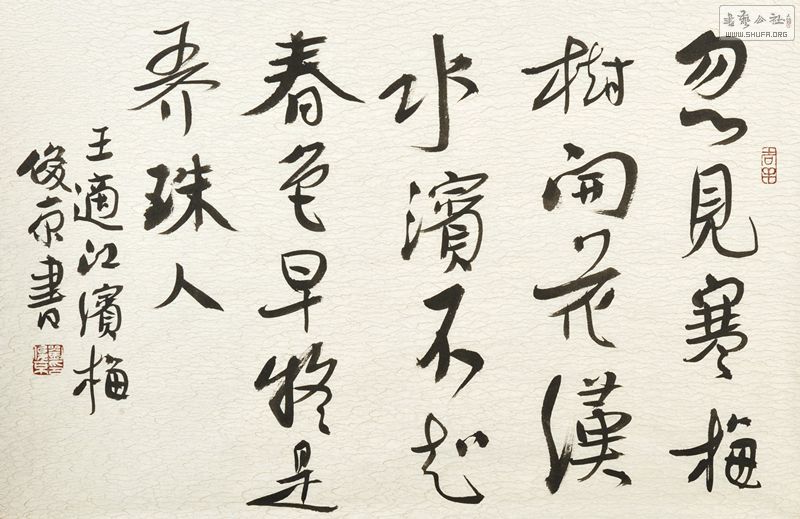 書藝公社
WWW.SHUFA.ORG
忽見寒梅
樹開花漢
水濱不知
春色早疑是
弄珠人
王適江濱梅
俊京書